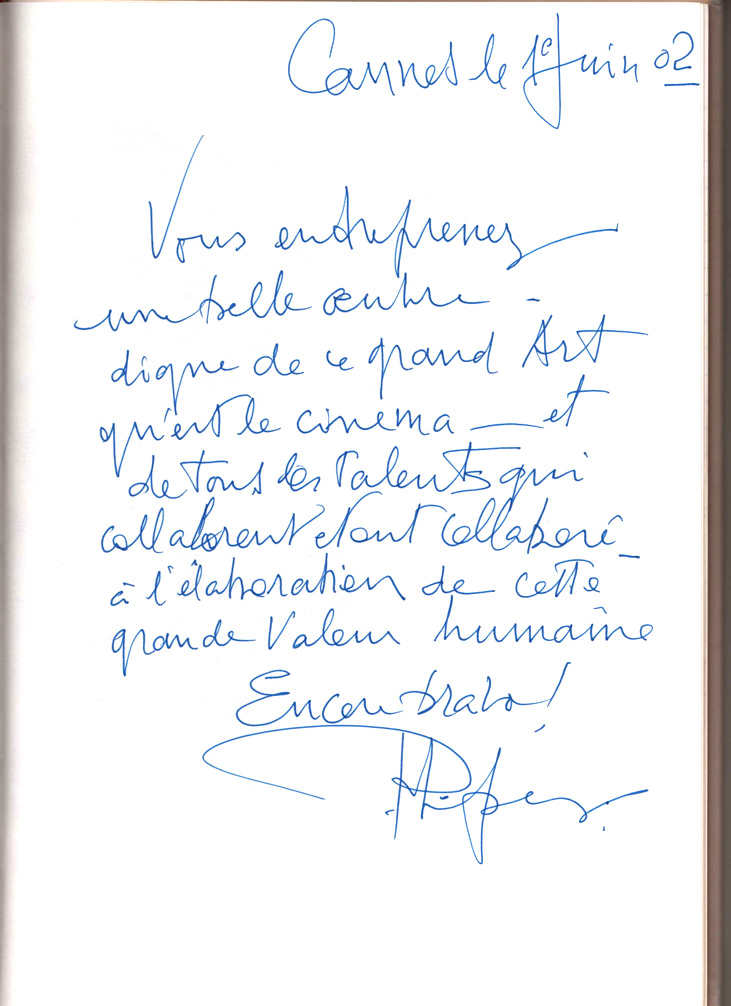 Cannes le 1e Juin 02
Vous entreprenez
une belle œuvre -
digne de ce grand Art
qu'est le cinema — et
de tous les Talents qui
collaborent et ont collaboré -
à l'élaboration de cette
grande Valeur humaine
Encore bravo !